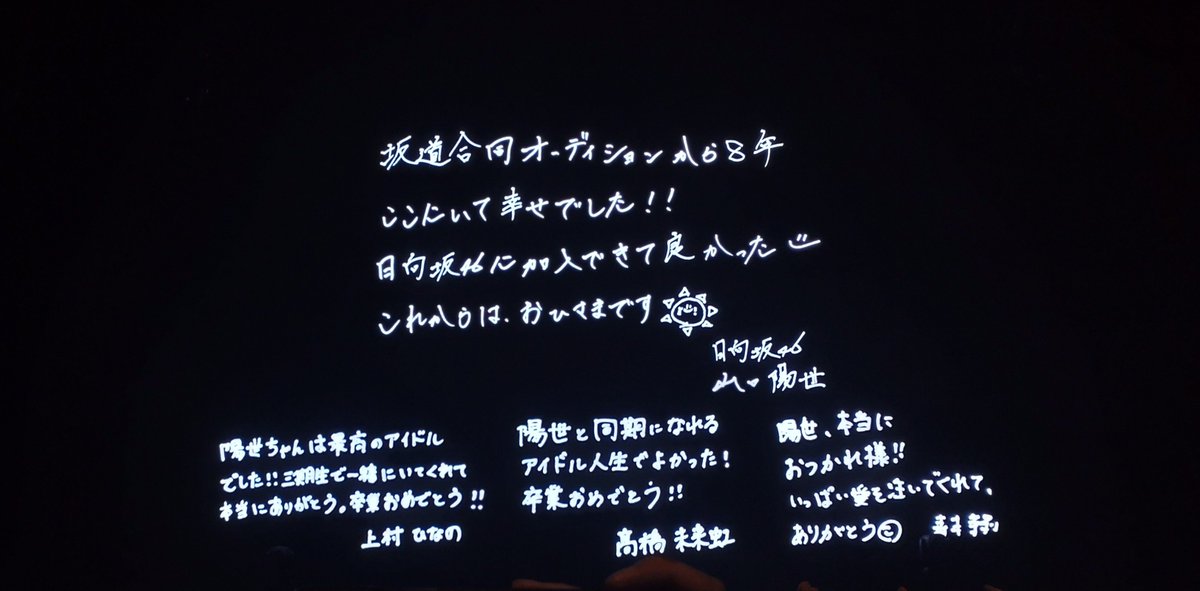 坂道合同オーディションから8年
ここにいて幸せでした!!
日向坂46に加入できて良かった
これからは、おひさまです
日向坂46
山口陽世
陽世ちゃんは最高のアイドル
でした!!三期生で一緒にいてくれて
本当にありがとう。卒業おめでとう!!
上村ひなの
陽世と同期になれる
アイドル人生でよかった!
卒業おめでとう!!
髙橋未来虹
陽世、本当に
おつかれ様!!
いっぱい愛を注いでくれて、
ありがとう
森本茉莉